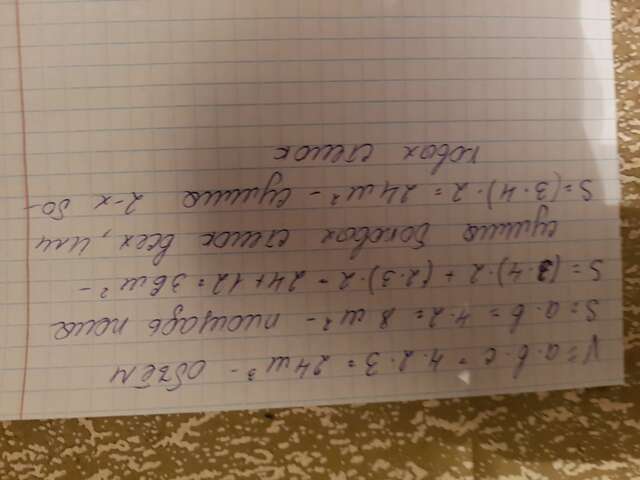 V = a · b · c = 4 · 2 · 3 = 24 м³ - объём
S = a · b = 4 · 2 = 8 м² - площадь пола
S = (3 · 4) · 2 + (2 · 3) · 2 = 24 + 12 = 36 м² -
сумма боковох стенок всех, или
S = (3 · 4) · 2 = 24 м² - сумма 2-х бо-
ковох стенок